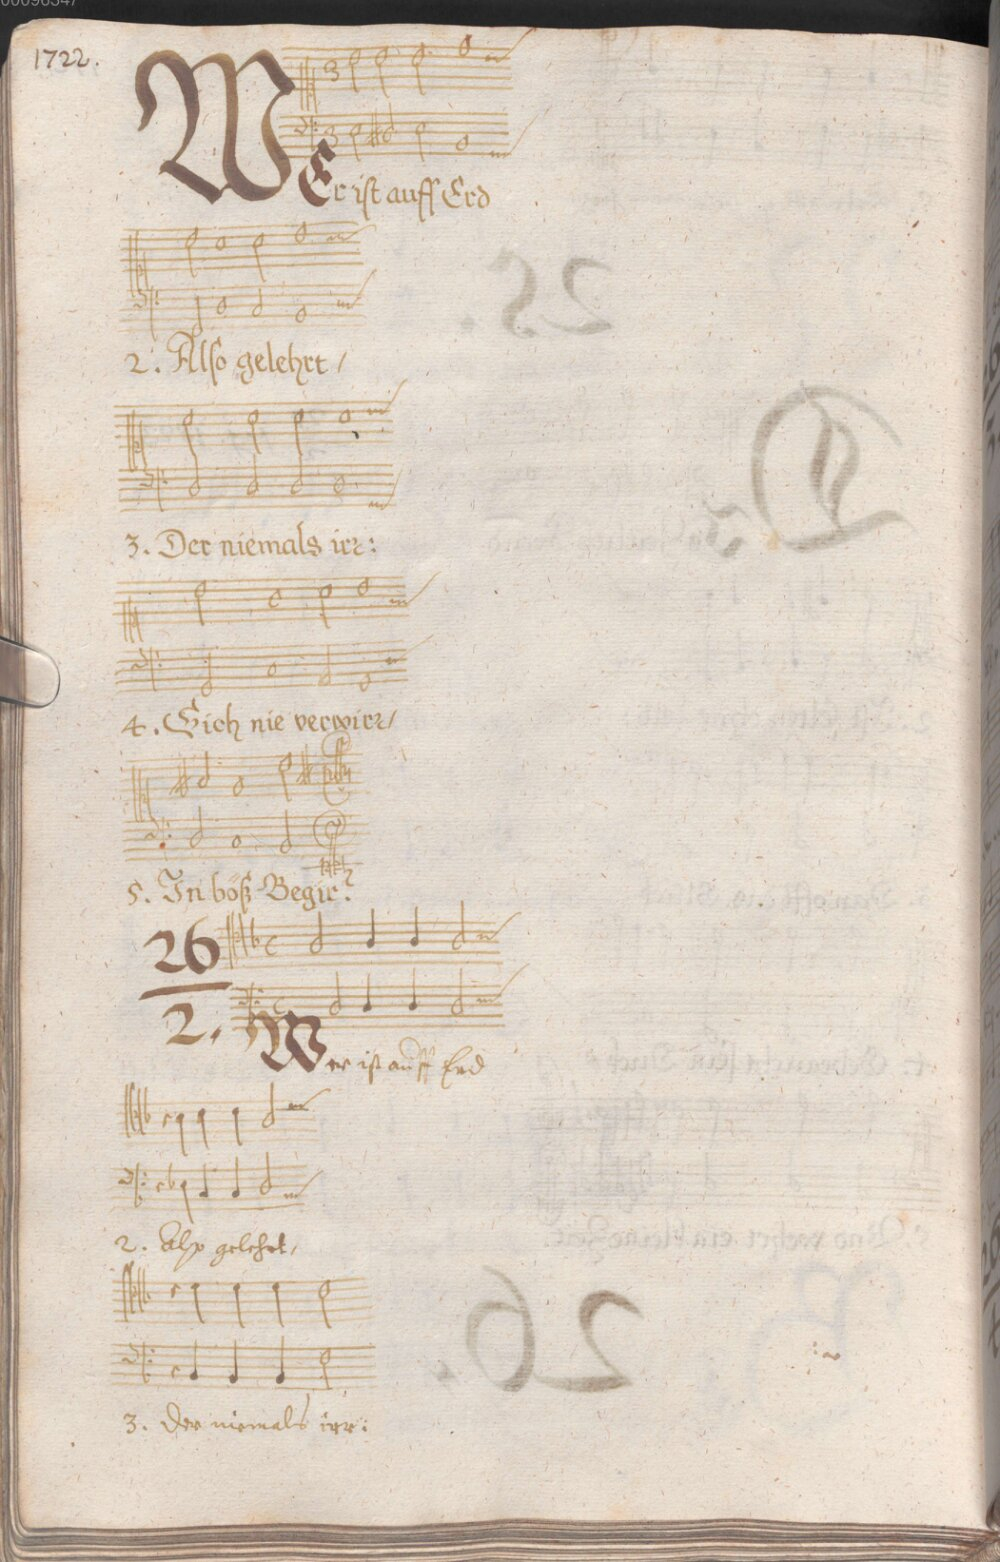 00096347
1722.
WEr ist auff Erd
2. Also gelehrt /
3. Der niemals irr:
4. Sich nie verwirr /
5. In böß Begir?
26
2.
Wer ist auff Erd
2. Also gelehrt /
3. Der niemals irr: